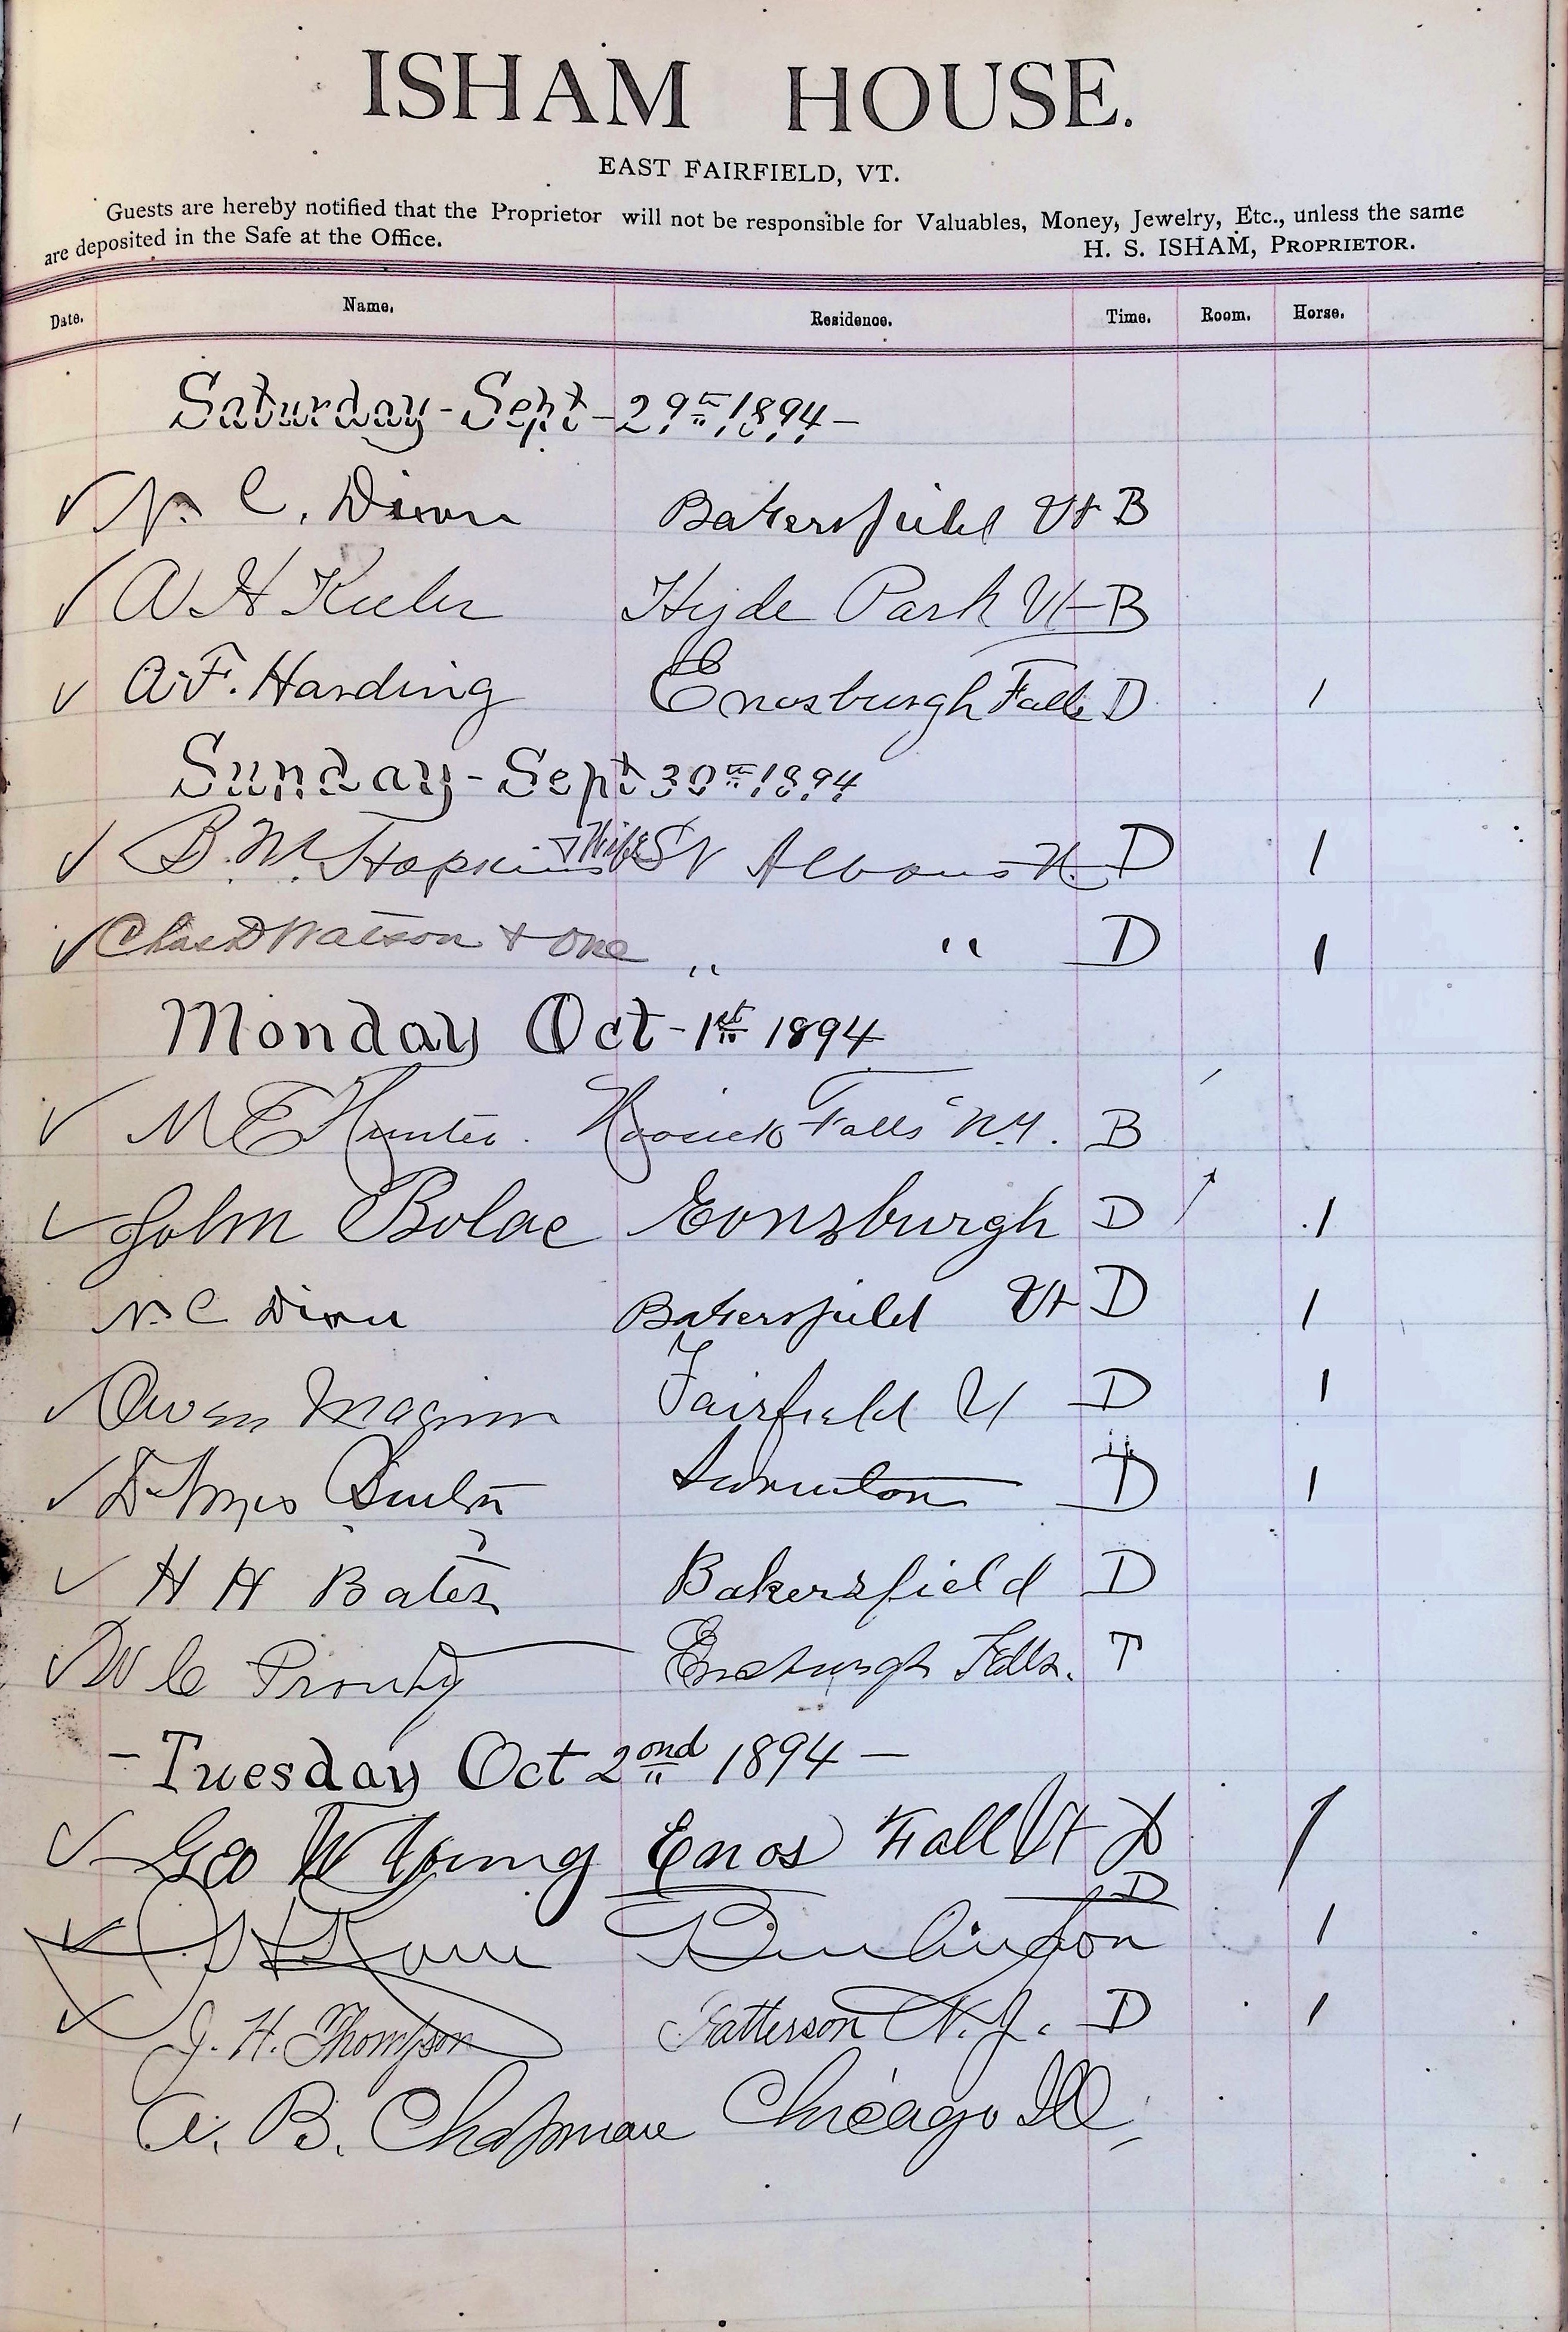 ISHAM HOUSE.
EAST FAIRFIELD, VT.
Guests are hereby notified that the Proprietor will not be responsible for Valuables, Money, Jewelry, Etc., unless the same
are deposited in the Safe at the Office.
H. S. ISHAM, PROPRIETOR.
Date. Name. Residence. Time. Room. Horse.
Saturday - Sept - 29th 1894 -
✓ N. C. Dixon Bakersfield Vt B
✓ A H Keeler Hyde Park Vt B
✓ A. F. Harding Enosburgh Falls D 1
Sunday - Sept 30th 1894
✓ B. M. Hopkins + Wife St Albans Vt. D 1
✓ Chas D Watson + One " " D 1
Monday Oct - 1st 1894
✓ M E Hunter. Hoosick Falls N.Y. B
✓ John Bolac Eonsburgh D 1
N. C Dixon Bakersfield Vt D 1
✓ Owen Maginn Fairfield Vt D 1
✓ Swanton D 1
✓ H H Bates Bakersfield D
✓ W C Prouty Enosburgh Falls. T
- Tuesday Oct 2ond 1894 -
✓ Geo W Young Enos Fall Vt D 1
✓ Burlington D 1
✓ J. H. Thompson Patterson N. J. D 1
A. B. Chapman Chicago Ill,